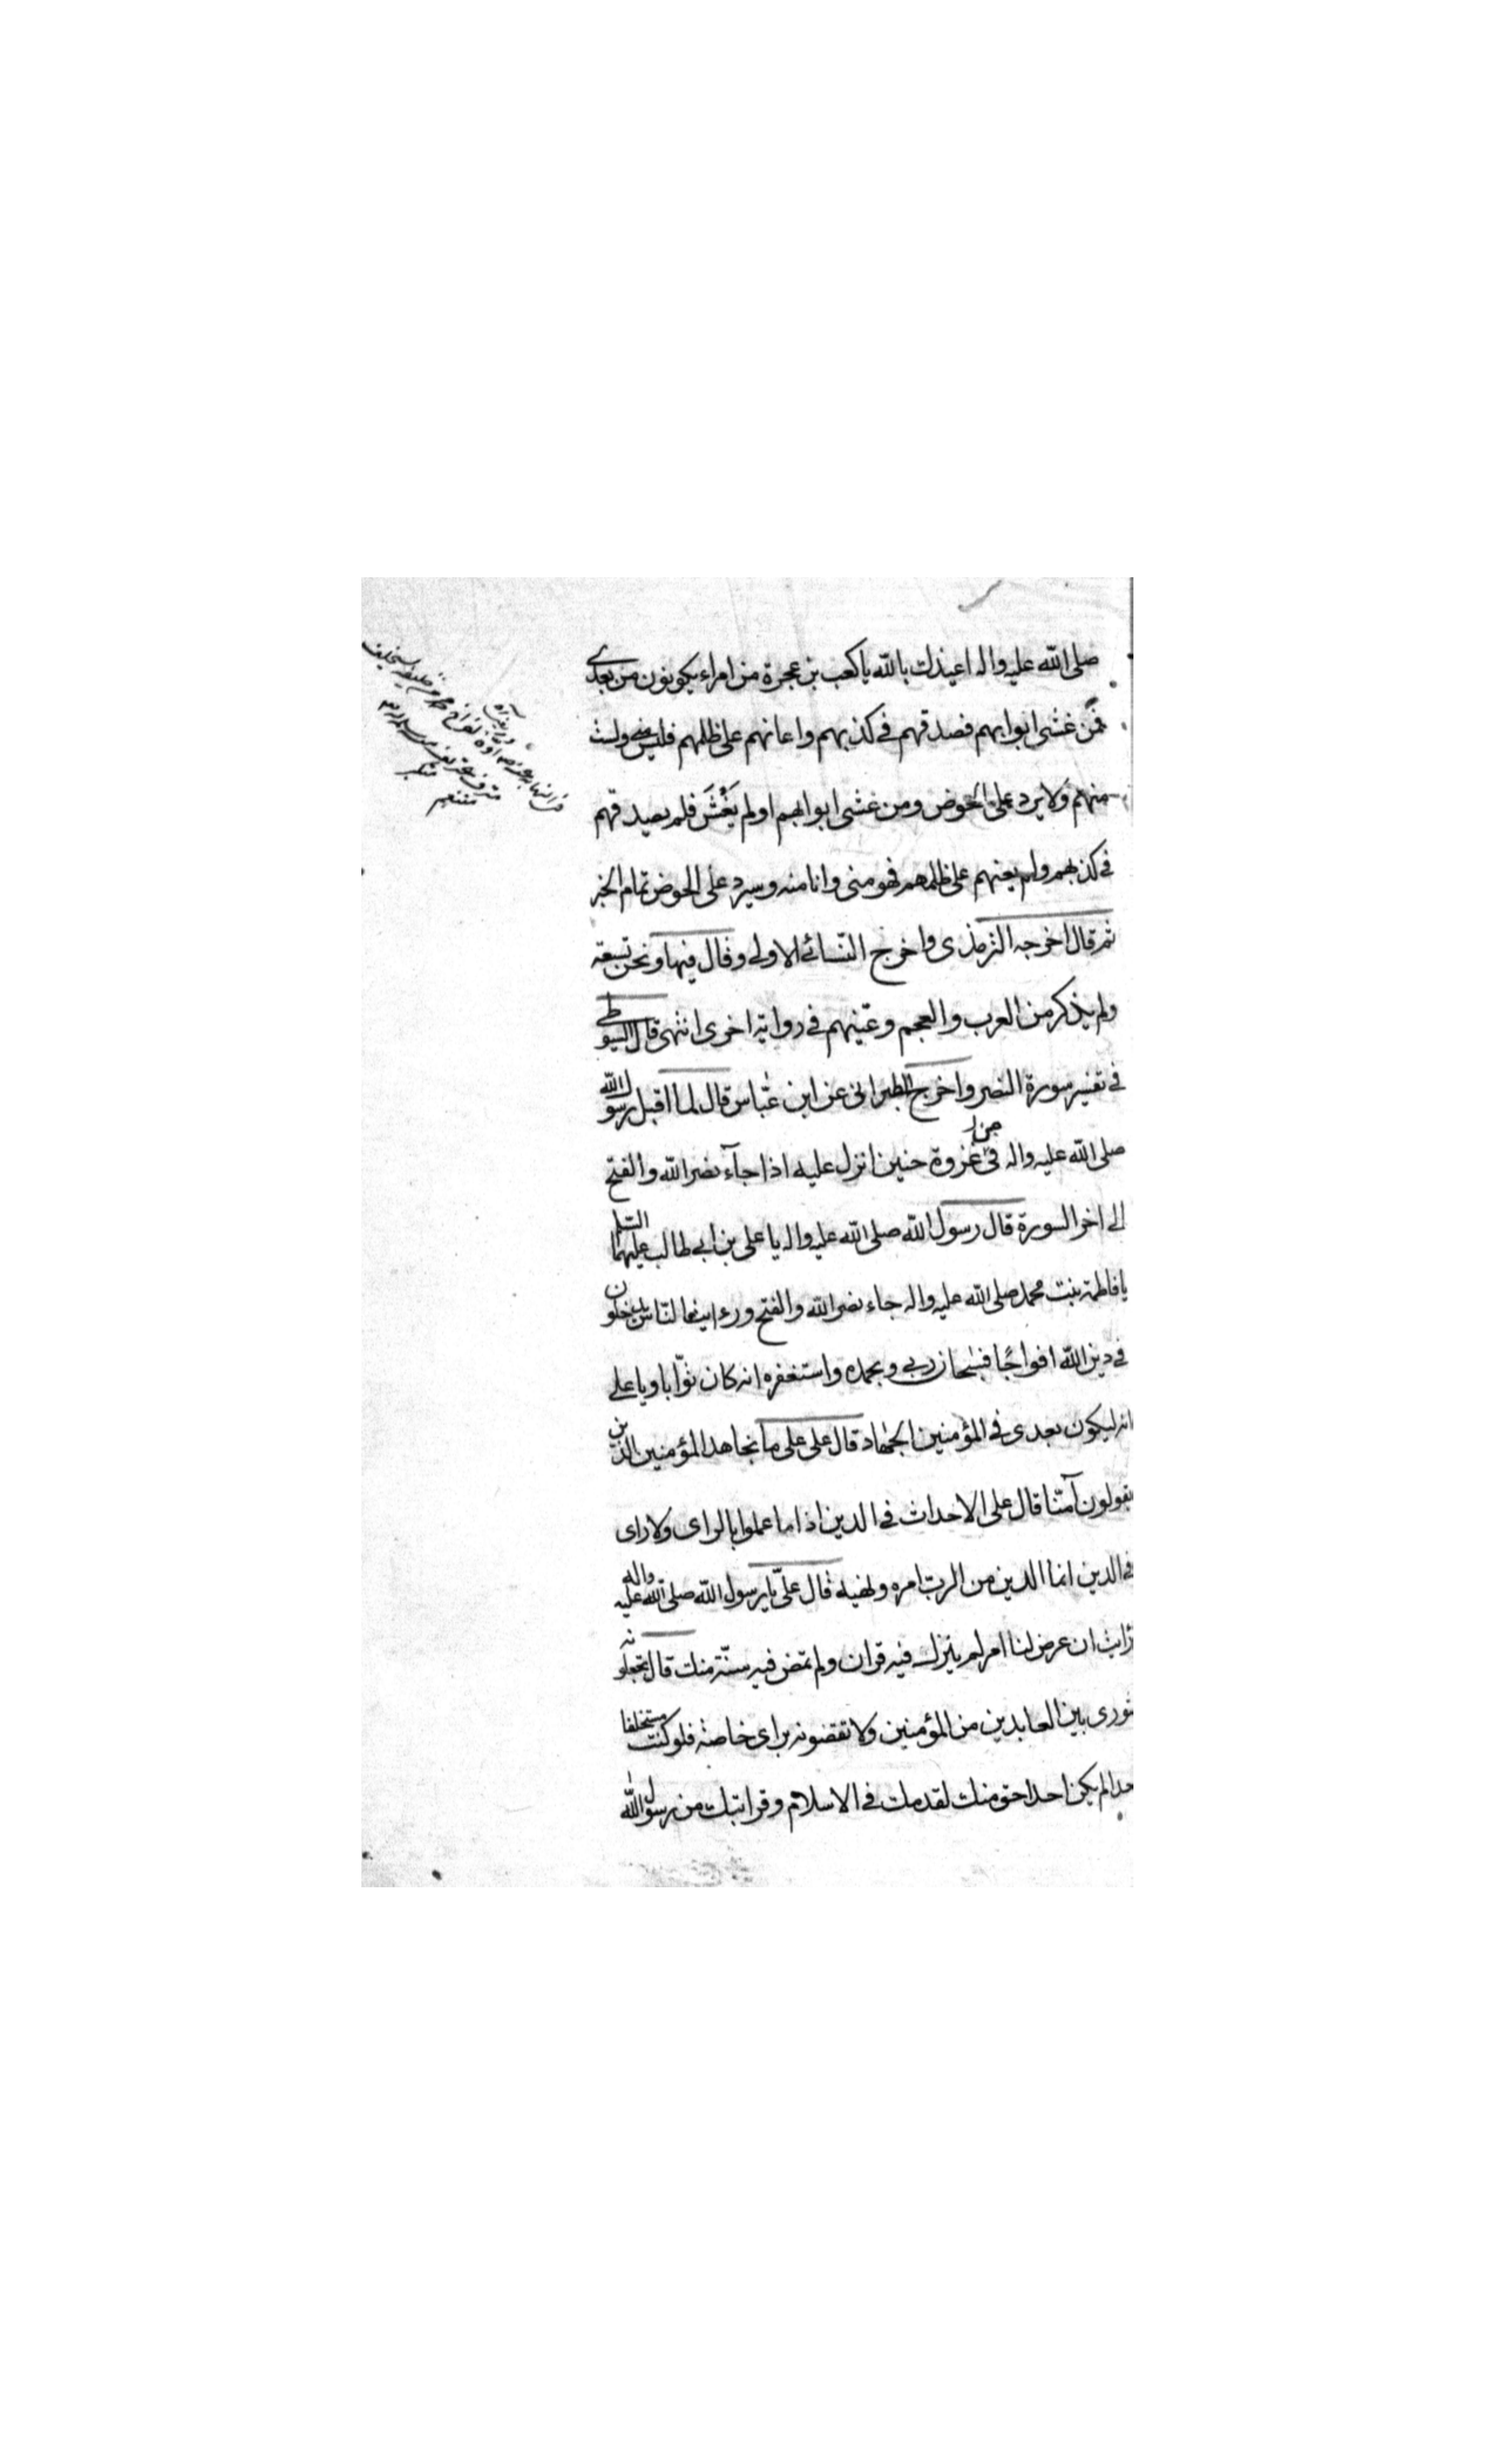 صلى الله عليه واله اعيذك بالله يا كعب بن عجرة من امراء يكونون من بعدى
فمن غشى ابوابهم فصدقهم فى كذبهم واعانهم على ظلمهم فليس منى ولست
منهم ولا يرد على الحوض ومن غشى ابوابهم او لم يغش فلم يصدقهم
فى كذبهم ولم يعنهم على ظلمهم فهو منى وانا منه وسيرد على الحوض تمام الخبر
ثم قال اخرجه الترمذى واخرج النسائے الاولى وقال فيها ونحن تسعة
ولم يذكر من العرب والعجم وعينهم فى رواية اخرى انتهى قال السيوطى
فى تفسير سورة النصر واخرج الطبرانى عن ابن عباس قال لما اقبل رسول الله
صلى الله عليه واله من غزوة حنين انزل عليه اذا جآء نصر الله والفتح
الى اخر السورة قال رسول الله صلى الله عليه واله يا على بن ابى طالب عليهما السلم
يا فاطمة بنت محمد صلى الله عليه واله جاء نصر الله والفتح ورءايت الناس يدخلون
فى دين الله افواجًا فسبحان ربى وبحمده واستغفره انه كان توّابا ويا على
انه ليكون بعدى فى المؤمنين الجهاد قال على على ما نجاهد المؤمنين الذين
يقولون آمنّا قال على الاحداث فى الدين اذا ما عملوا بالراى ولا راى
فى الدين انما الدين من الرب امره ونهيه قال علىّ يا رسول الله صلى الله عليه واله
رايت ان عرض لنا امر لم ينزل فيه قران ولم تمض فيه سنّة منك قال تجعلونه
شورى بين العابدين من المؤمنين ولا تقضونه براى خاصة فلو كنت مستخلفا
حدا لم يكن احد احق منك لقدمك فى الاسلام وقرابتك من رسول الله